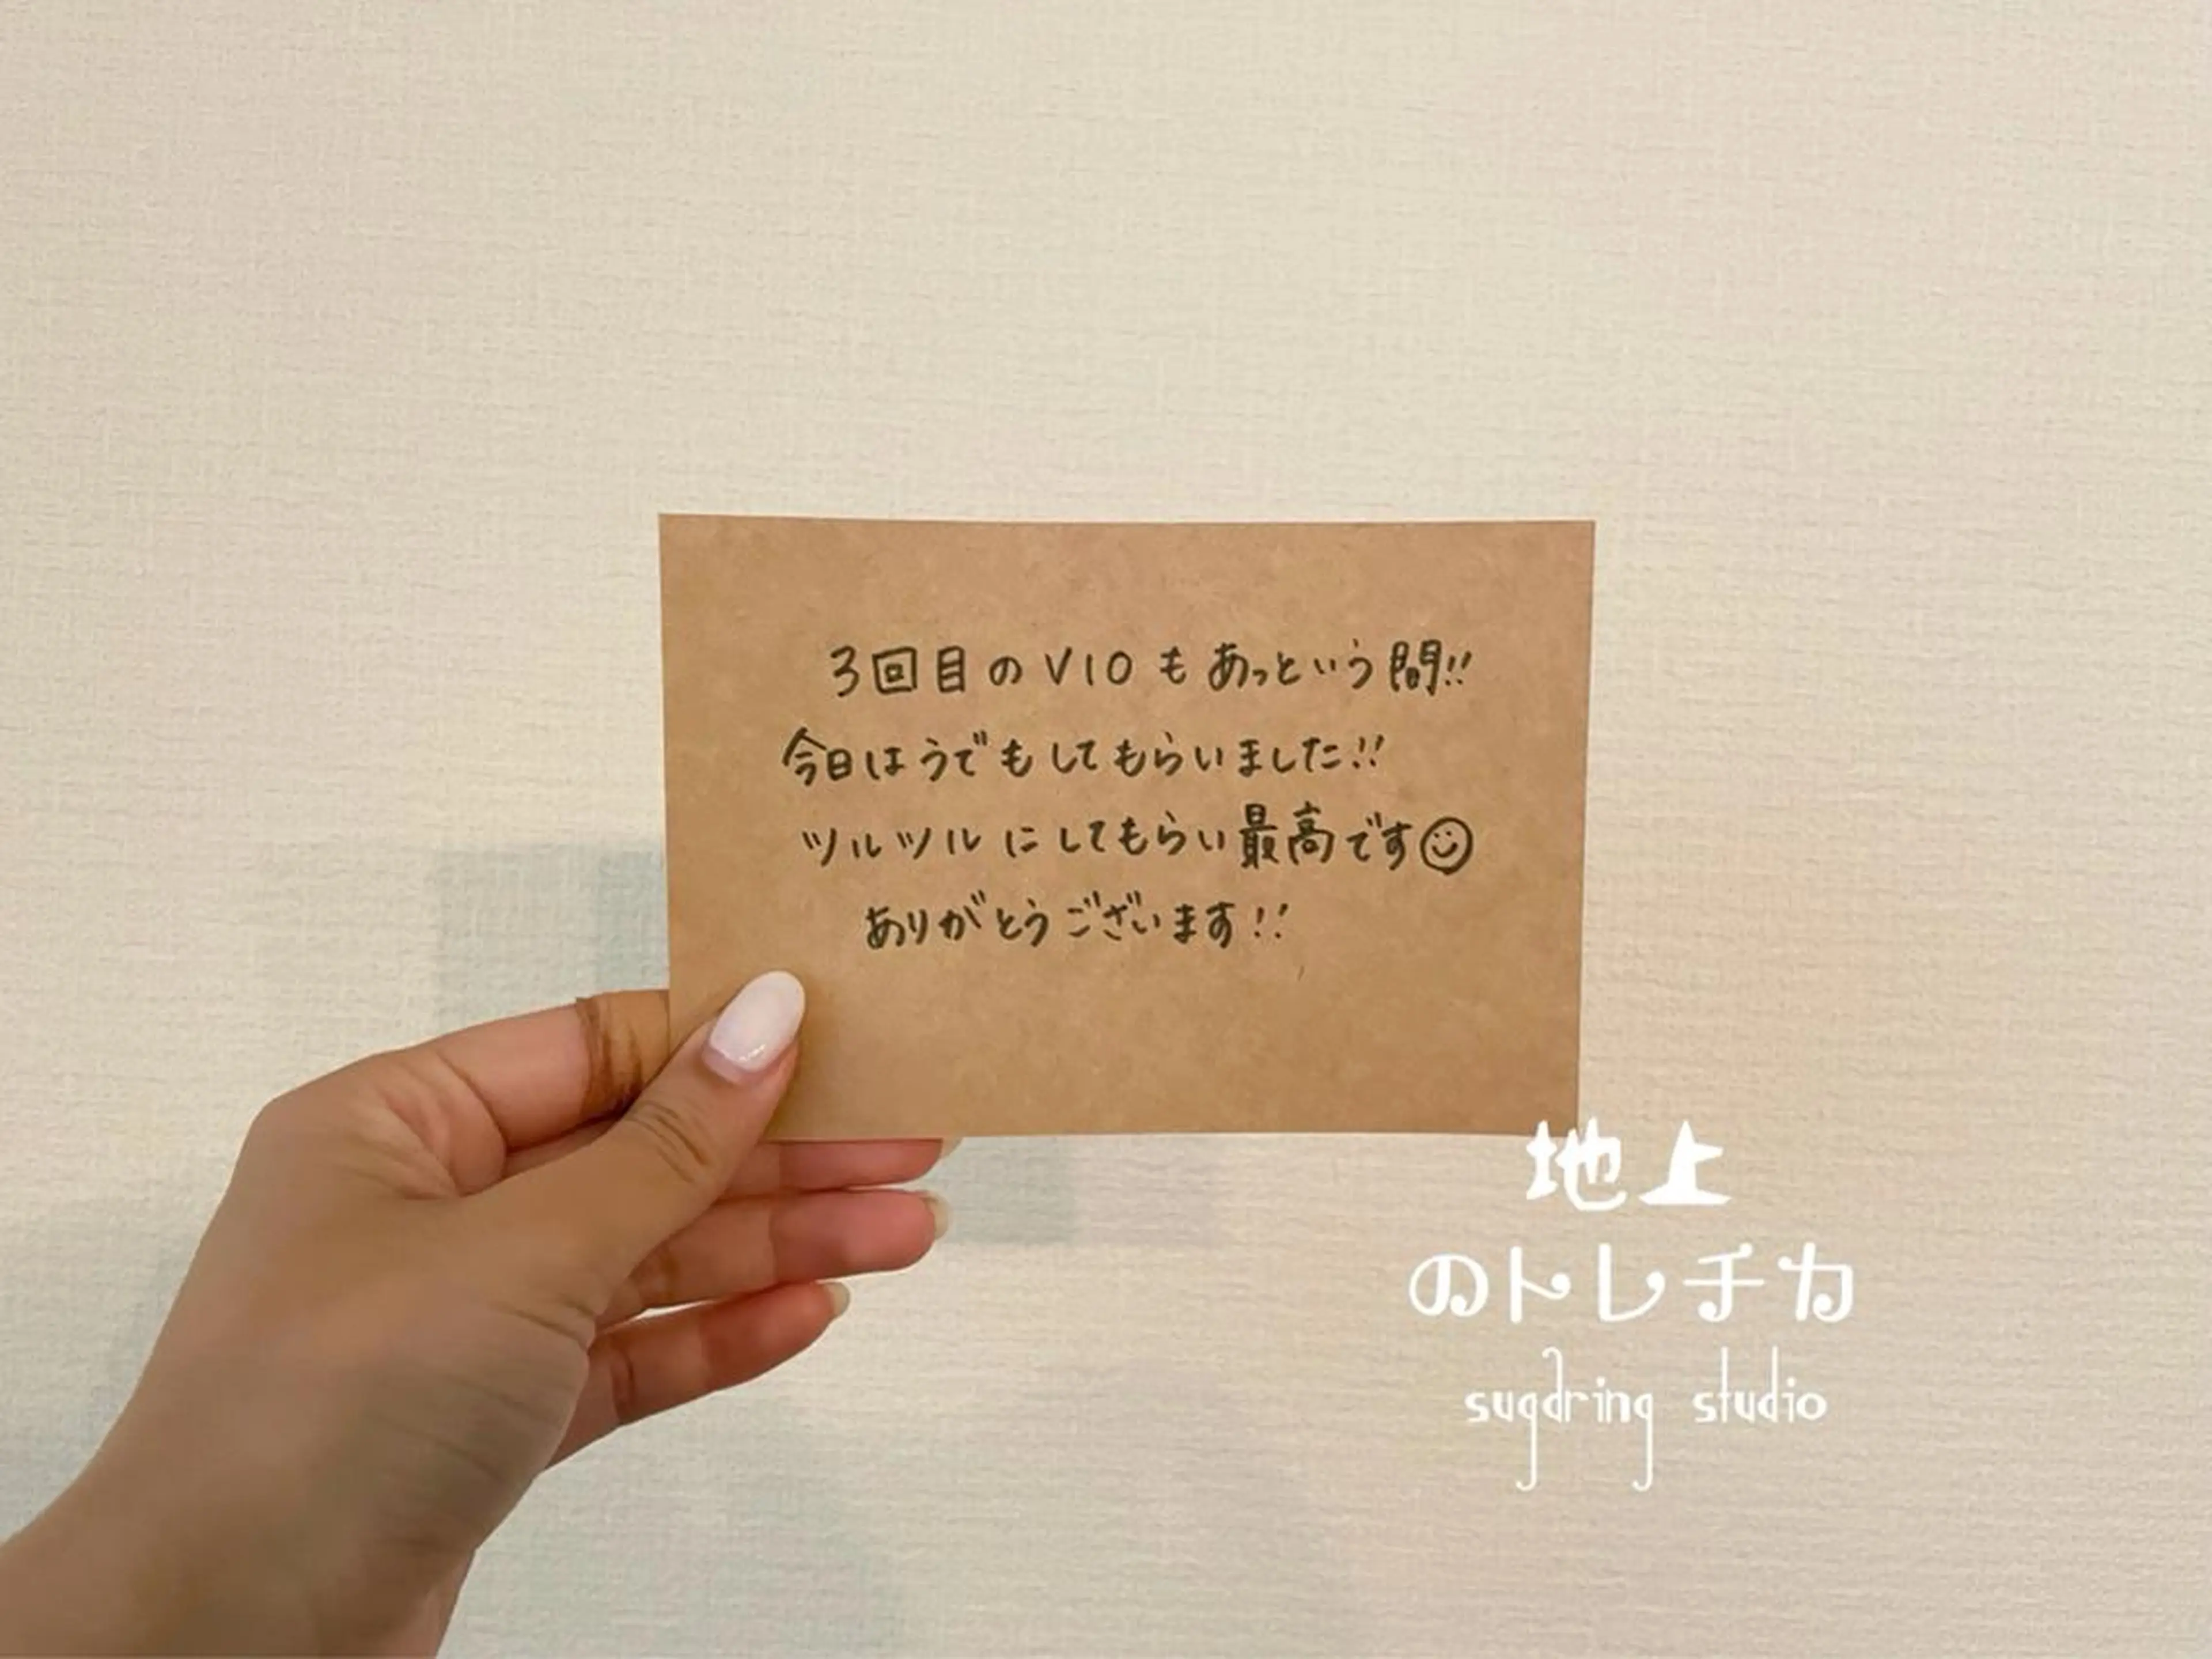 3回目のVIOもあっという間!!
今日はうでもしてもらいました!!
ツルツルにしてもらい最高です☺
ありがとうございます!!
地上
のトレチカ
sugaring studio